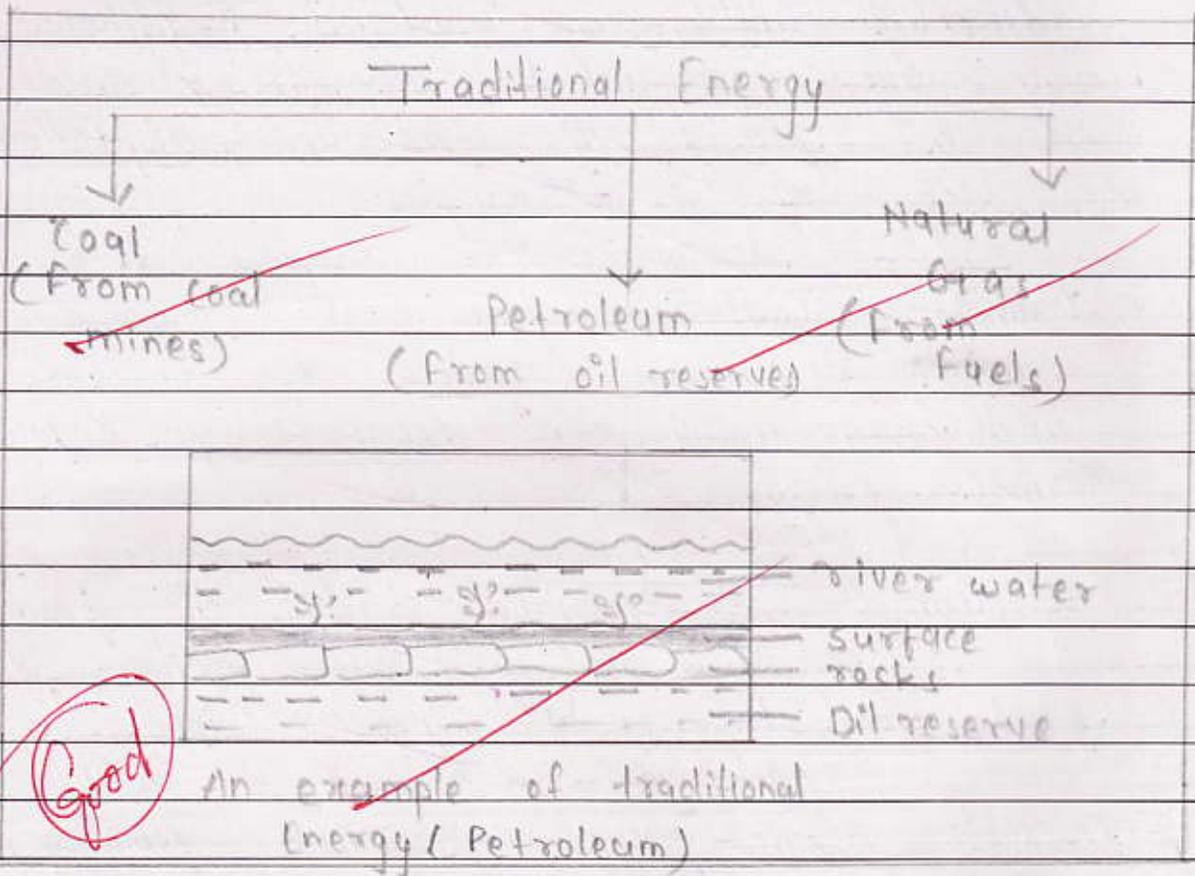 Traditional Energy
Coal
(From coal
mines)
Petroleum
(From oil reserves)
Natural
Gas
(From
fuels)
river water
surface
rocks
Oil reserve
Good
An example of traditional
Energy (Petroleum)